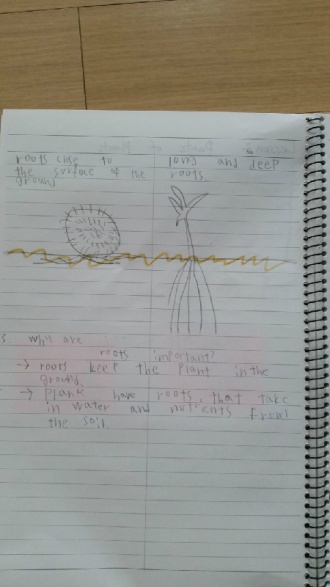 roots close to
the surface of the
ground
long and deep
roots.
s. why are
roots important?
→ roots keep the plant in the
ground.
→ plant have roots, that take
in water and nutrients from
the soil.